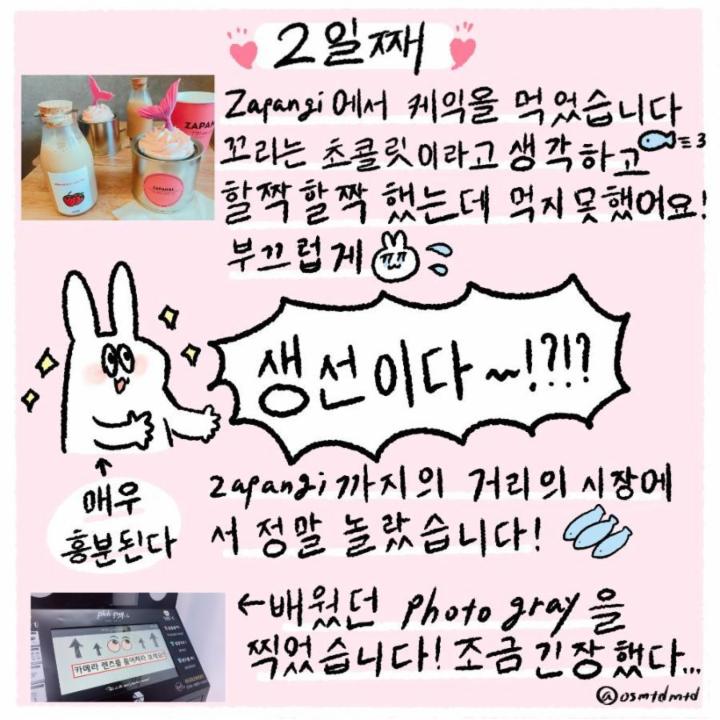 2일째
Zapangi에서 케익을 먹었습니다
꼬리는 초콜릿이라고 생각하고
할짝할짝 했는데 먹지못했어요!
부끄럽게
ZAPANGI
생선이다~!?!?
매우
흥분된다
zapangi까지의 거리의 시장에
서 정말 놀랐습니다!
←배웠던 photo gray을
찍었습니다! 조금 긴장했다...
카메라 렌즈를
@osmtdmtd